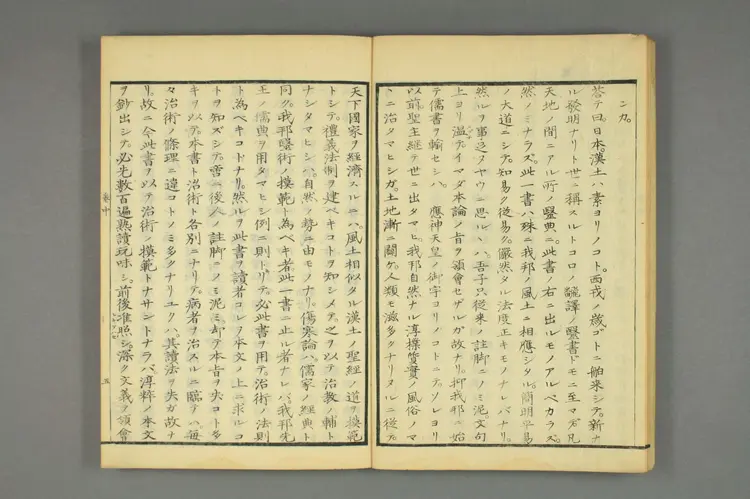 ンカ。
荅テ曰。日本。漢土ハ素ヨリノコト。西戎ノ
ゴトニ舶来シテ。新ナ
ル發明ナリト世ニ稱スルトコロノ飜譯ノ毉書ドモニ至マデ。凡
天地ノ間ニアル所ノ毉典ニ。此書ノ右ニ出ルモノアルベカラズ。
然ノミナラズ。此一書ハ殊ニ我邦ノ風土ニ相應シタル。簡明平易
ノ大道ニシテ。知易ク從易ク。嚴然タル法度正キモノナレバナリ。
然ルヲ事乏ヲヤウニ思ルヽハ。吾子只從来ノ註脚ニノミ泥。文句
上ヨリ
テイマダ本論ノ旨ヲ領會セザルガ故ナリ。抑我邦ニ始
テ儒書ヲ輸セシハ。應神天皇ノ御宇ヨリノコトニテ。ソレヨリ
以前。聖主繼テ世ニ出タマヒ。我邦自然ナル淳樸質實ノ風俗ノマ
ヽニ治タマヒシガ。土地漸ニ闢ケ。人類モ滋多クナリタルニ從テ。
天下國家ヲ經濟スルニハ。風土相似タル漢土ノ聖經ノ道ヲ模範
トシテ。禮義法制ヲ建ベキコトヲ知シメテ。之ヲ以テ治教ノ輔ト
ナシタマヒシハ。自然ノ勢ニ由モノナリ。傷寒論ハ。儒家ノ經典ト
同ク。我邦毉術ノ模範ト為ベキ者。此一書ニ止ル者ナレバ。我邦先
王ノ儒典ヲ用タマヒシ例ニ則トリテ。必此書ヲ用テ。治術ノ法則
ト為ベキコトナリ。然ルヲ此書ヲ讀者。コレヲ本文ノ上ニ求ルコ
トヲ知ズシテ。
後人ノ註脚ニノミ泥ミ。却テ本旨ヲ失コト多
キヲ以テ。本書ト治術ト各別ニナリテ。病者ヲ治スルニ臨テハ。毎
々治術ノ條理ニ違コトノミ多クナリユクハ。其讀法ヲ失ガ故ナ
リ。故ニ今此書ヲ以テ治術ノ模範トナサントナラバ。淳粹ノ本文
ヲ鈔出シテ。必先數百遍熟讀玩味シ。前後准照シ。深ク文義ヲ領會
巻中
五